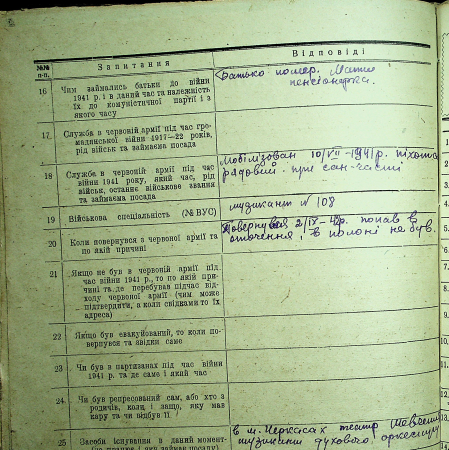 №№ п-п.
Запитання
Відповіді
16
Чим займались батьки до війни
1941 р. і в даний час та належність
їх до комуністичної партії і з
якого часу
Батько помер. Мати
пенсіонерка.
17
Служба в червоній армії під час гро-
мадянської війни 1917—22 років,
рід військ та займаєма посада
18
Служба в червоній армії під час
війни 1941 року, який час, рід
військ, останнє військове звання
та займаєма посада
Мобілізован 10/VII-1941р. піхота
рядовий при сан-часті
19
Військова спеціальність (№ ВУС)
музикант № 108
20
Коли повернувся з червоної армії та
по якій причині
Повернувся 2/IX-41р. попав в
оточення, в полоні не був.
21
Якщо не був в червоній армії під
час війни 1941 р., то по якій при-
чині та де перебував підчас від-
ходу червоної армії (чим може
підтвердити, а коли свідками то їх
адреса)
22
Якщо був евакуйований, то коли по-
вернувся та звідки саме
23
Чи був в партизанах під час війни
1941 р. та де саме і який час
24
Чи був репресований сам, або хто з
родичів, коли, і защо, яку мав
кару та чи відбув її
25
Засоби існування в даний момент
в м. Черкасах театр Шевченка
музикант духового оркестру